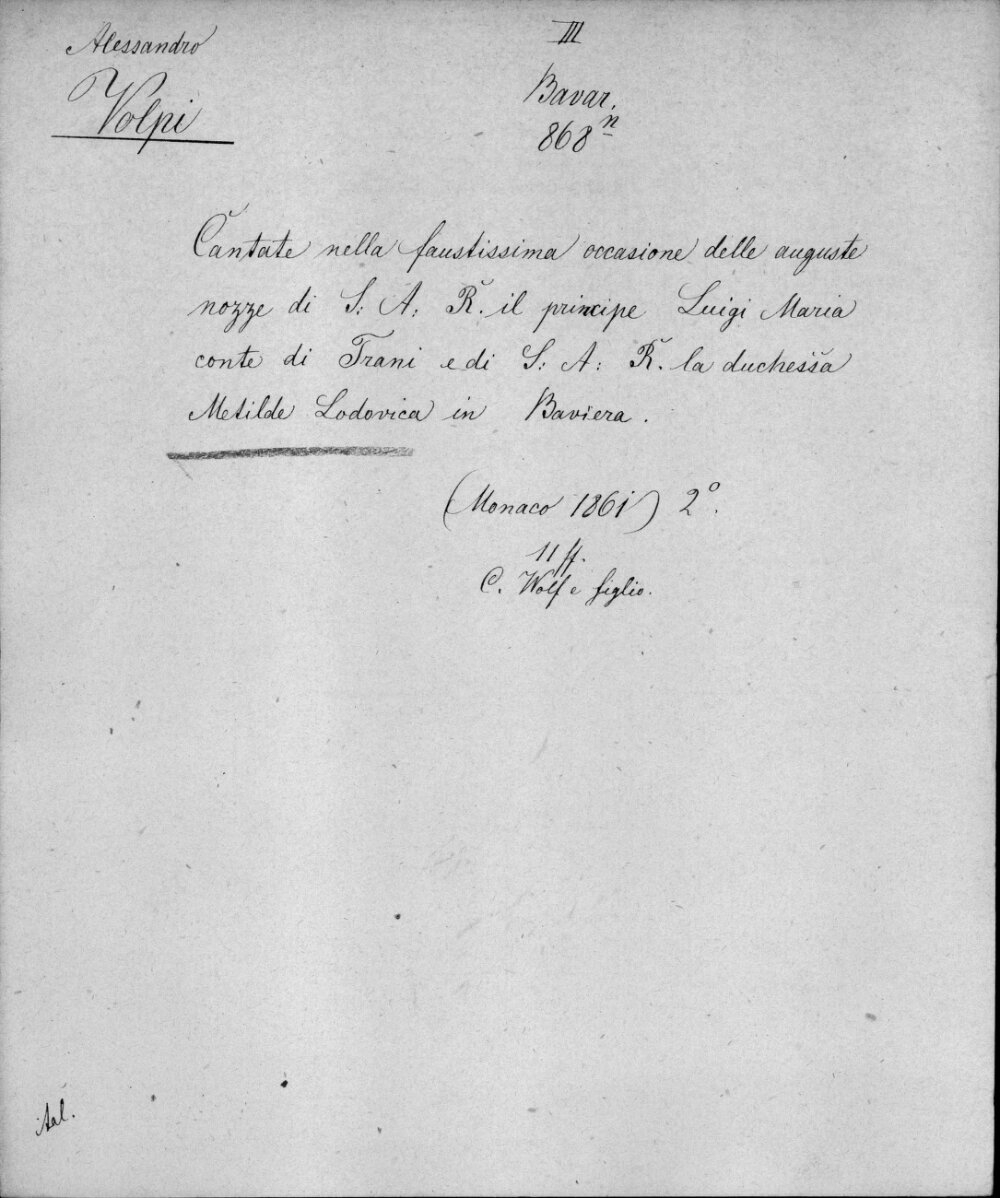 Alessandro
Volpi
III
Bavar.
868 n
Cantate nella faustissima occasione delle auguste
nozze di S: A: R. il principe Luigi Maria
conte di Trani e di S: A: R. la duchessa
Metilde Lodovica in Baviera.
(Monaco 1861) 2°.
11 ff.
C. Wolf e figlio.
ital.